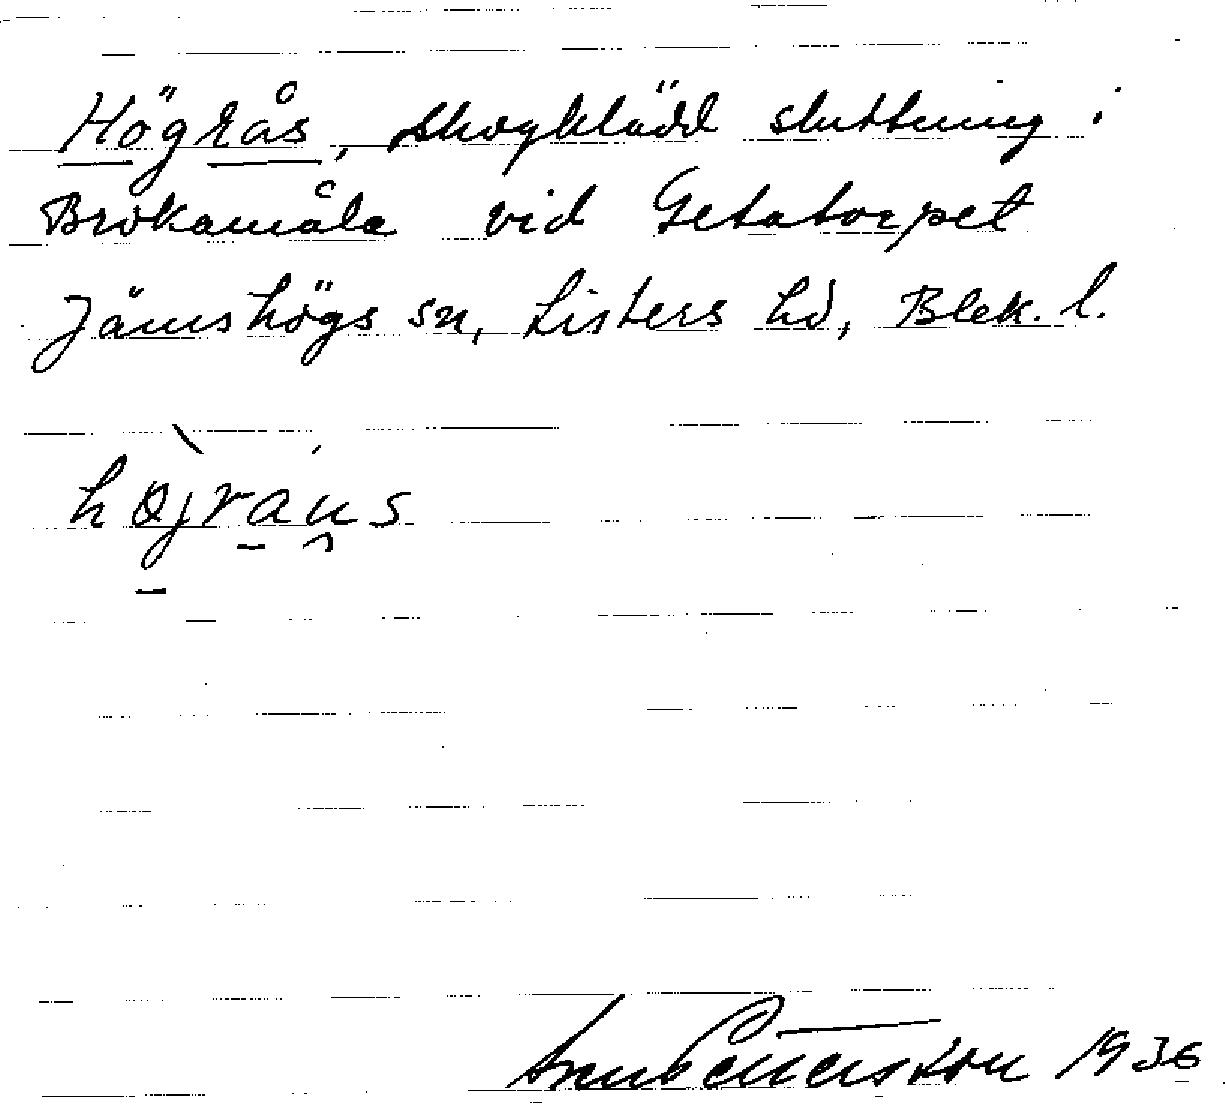 Högrås, skogklädd sluttning i
Brokamåla vid Getatorpet
Jämshögs sn, Listers hd, Blek. l.
højraus
Petterson 1936